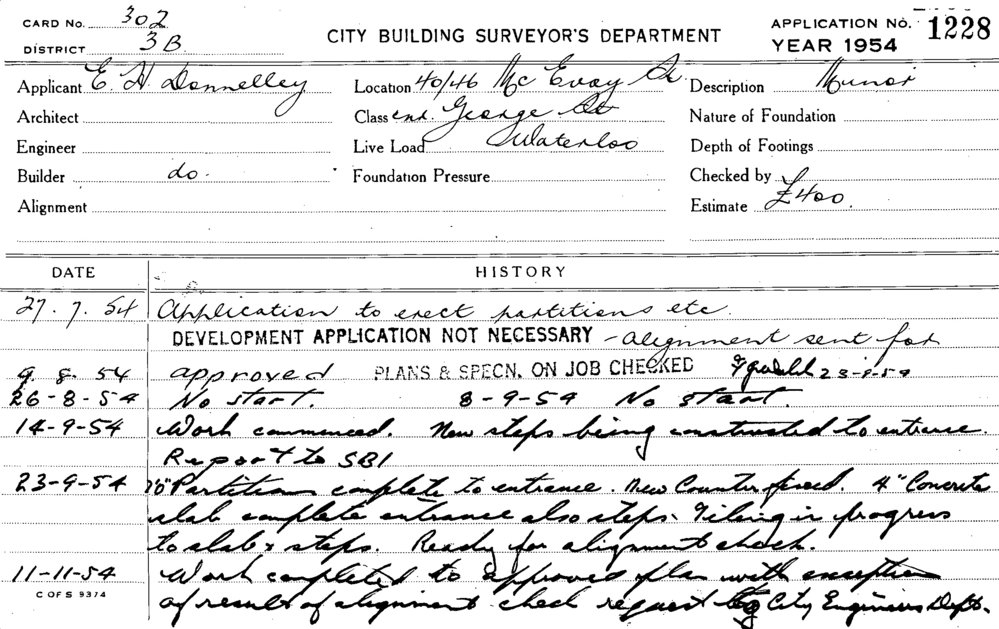 CARD No. 302
DISTRICT 3B
CITY BUILDING SURVEYOR'S DEPARTMENT
APPLICATION No. 1228
YEAR 1954
Applicant E. H. Donnelley
Location 40/46 McEvoy St.
Description Minor
Architect
Class cnr. George St
Nature of Foundation
Engineer
Live Load Waterloo
Depth of Footings
Builder do.
Foundation Pressure
Checked by
Alignment
Estimate £400.
DATE HISTORY
27. 7. 54 Application to erect partitions etc.
DEVELOPMENT APPLICATION NOT NECESSARY - alignment sent for
9. 8. 54 approved PLANS & SPECN. ON JOB CHECKED 23-9-54
26-8-54 No start. 8-9-54 No start.
14-9-54 Work commenced. New steps being constructed to entrance.
Report to SBI
23-9-54 7'0" Partitions complete to entrance. New Counter fixed. 4" Concrete
slab complete entrance also steps. Tileing in progress
to slab & steps. Ready for alignment check.
11-11-54 Work completed to approved plan with exception
of result of alignment check request by City Engineers Dept.
C OF S 9374